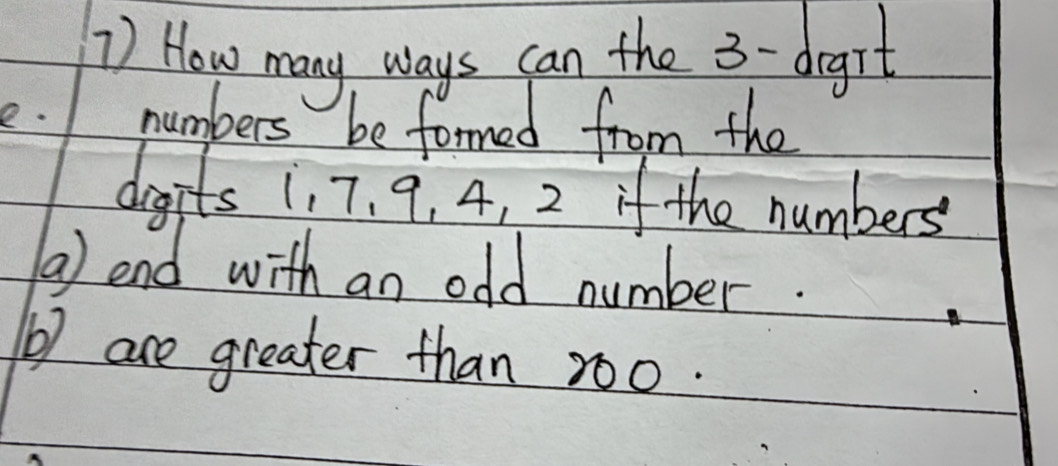 7) How many ways can the 3-digit
e. numbers be formed from the
digits 1, 7, 9, 4, 2 if the numbers
a) end with an odd number.
b) are greater than 200.